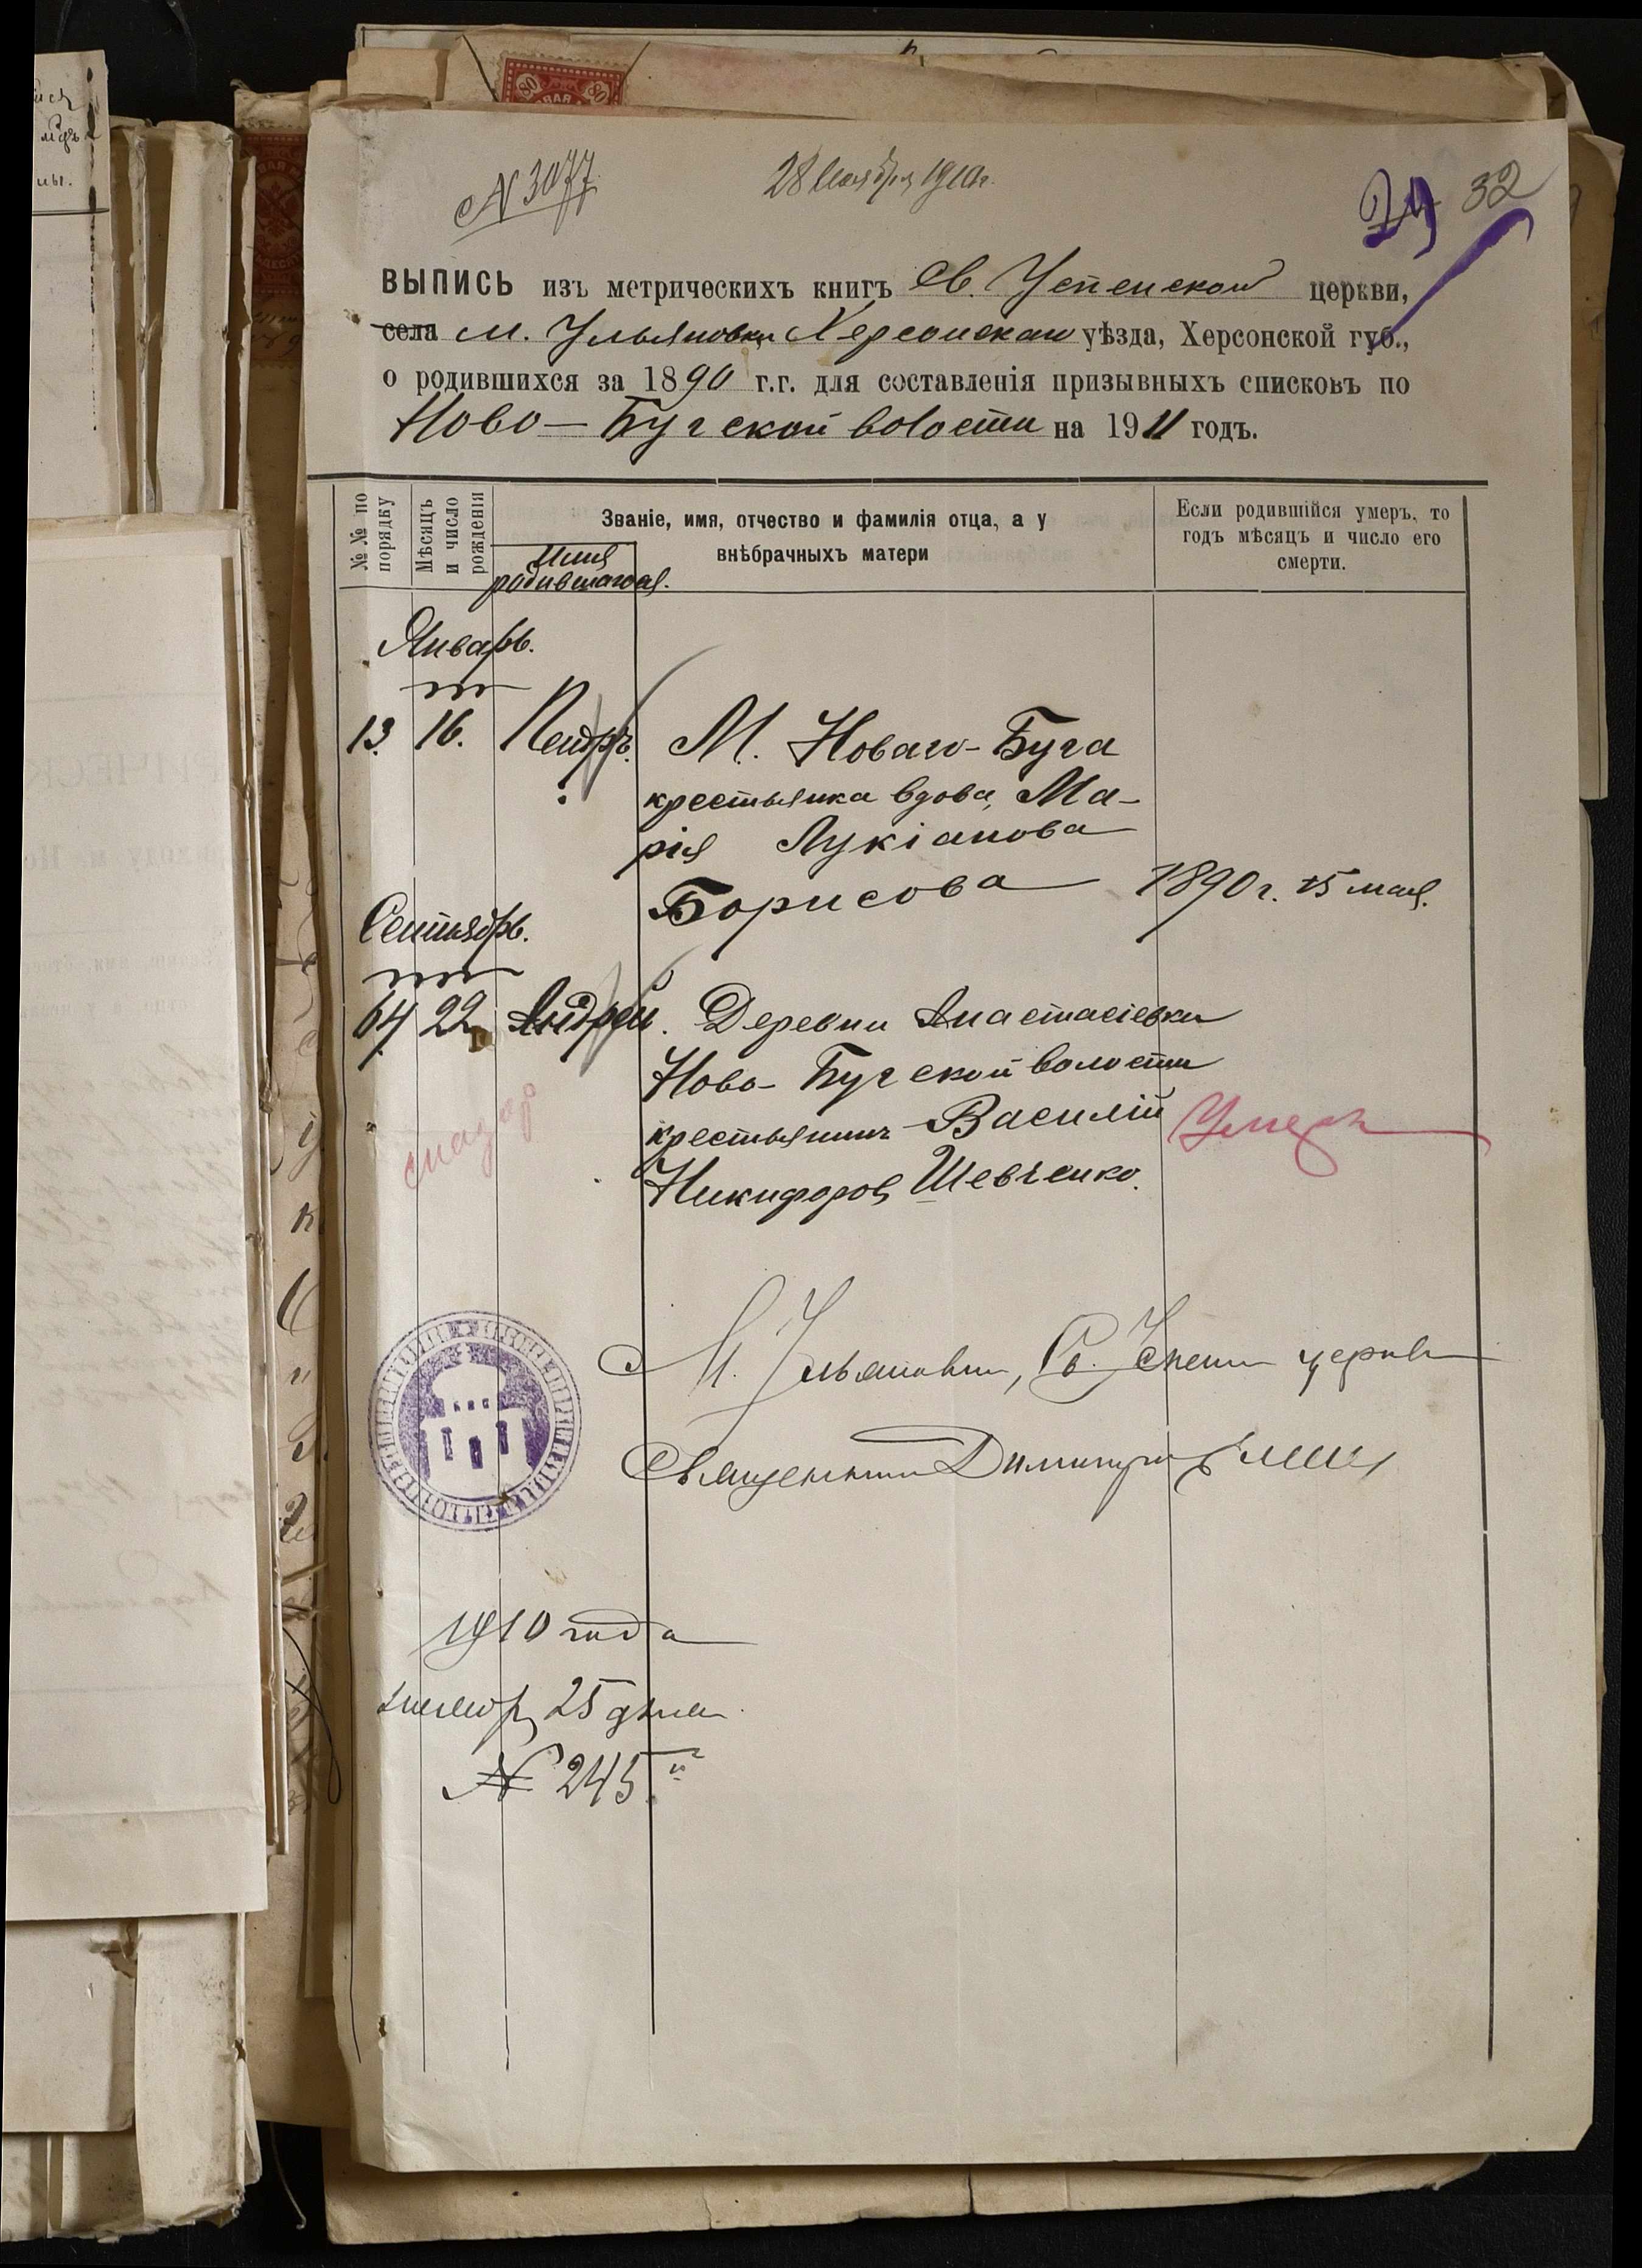 № 3077.
28 Ноября 1910 г.
29 32
ВЫПИСЬ изъ метрическихъ книгъ Св. Успенской церкви,
села м. Ульяновки, Херсонскаго уѣзда, Херсонской губ.,
о родившихся за 1890 г.г. для составленія призывныхъ списковъ по
Ново-Бугской волости на 1911 годъ.
№№ по порядку
Мѣсяцъ и число рожденія
Имя
родившагося.
Званіе, имя, отчество и фамилія отца, а у
внѣбрачныхъ матери
Если родившійся умеръ, то
годъ мѣсяцъ и число его
смерти.
Январь.
13. 16. Петръ. М. Новаго-Буга
крестьянка вдова, Ма-
рія Лукіанова
Борисова 1890 г. 15 мая.
Сентябрь.
64. 22. Андрей. Деревни Анастасіевки
Ново-Бугской волости
крестьянинъ Василій
Никифоровъ Шевченко.
Умеръ
М. Ульяновки, Св. Успен церкви
Священникъ Димитрій
1910 года
25 дня.
№ 245